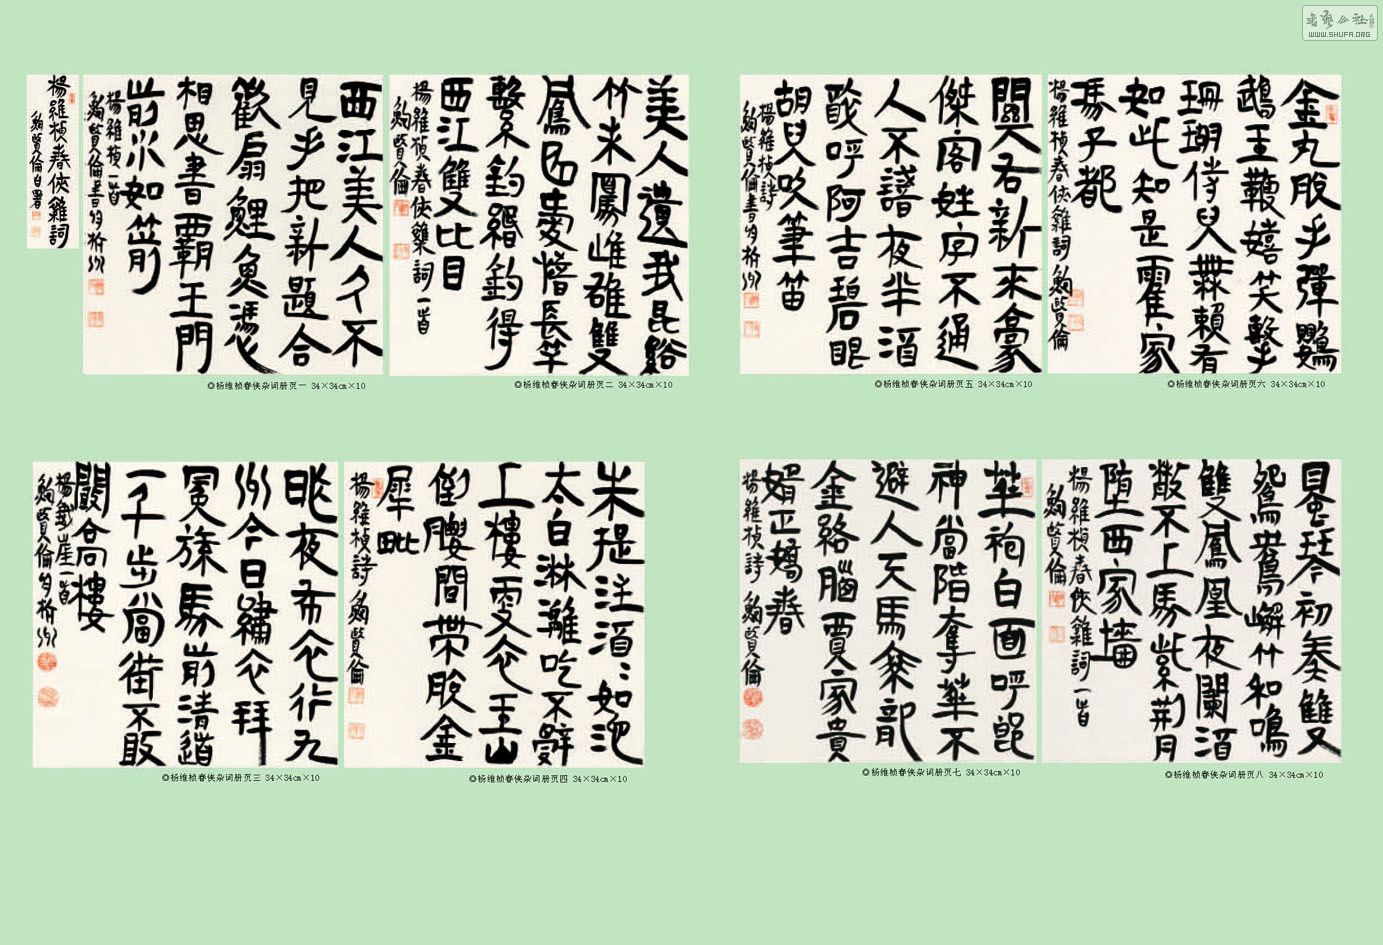 书艺公社
WWW.SHUFA.ORG
楊維楨春俠雜詞
鮑賢倫自署
西江美人久不
見手把新題合
歡扇鯉魚馮
相思書霸王門
前水如箭
楊維楨一首
鮑賢倫書
◎杨维桢春侠杂词册页一 34×34cm×10
美人遺我昆谿
竹未寫雌雄雙
鳳曲愛惜長竿
繫釣緡釣得
西江雙比目
楊維楨春俠雜詞一首
鮑賢倫
◎杨维桢春侠杂词册页二 34×34cm×10
關右新來豪
傑客姓字不通
人不識夜半酒
戢呼阿吉碧眼
胡兒吹筆笛
楊維楨詩
鮑賢倫書
◎杨维桢春侠杂词册页五 34×34cm×10
金丸脫手彈鸚
鵡玉鞭嬉笑擊
珊瑚侍兒無賴有
如此知是霍家
馮子都
楊維楨春俠雜詞 鮑賢倫
◎杨维桢春侠杂词册页六 34×34cm×10
昨夜布衣行九
州今日繡衣拜
冕旒馬前清道
一千步當街不敢
鬥合同樓
楊鐵崖一首
鮑賢倫
◎杨维桢春侠杂词册页三 34×34cm×10
朱提注酒酒如池
太白淋漓吃不辭
上樓更衣玉山
倒腰間帶脫金
犀毗
楊維楨詩 鮑賢倫
◎杨维桢春侠杂词册页四 34×34cm×10
袍白面呼
神當階奪華不
避人天馬龍
金絡腦賈家貴
婿正嬌春
楊維楨詩 鮑賢倫
◎杨维桢春侠杂词册页七 34×34cm×10
琴初奏雙
鴛鴦嶰竹和鳴
雙鳳凰夜闌酒
散不上馬紫荊月
墮西家墻
楊維楨春俠雜詞一首
鮑賢倫
◎杨维桢春侠杂词册页八 34×34cm×10